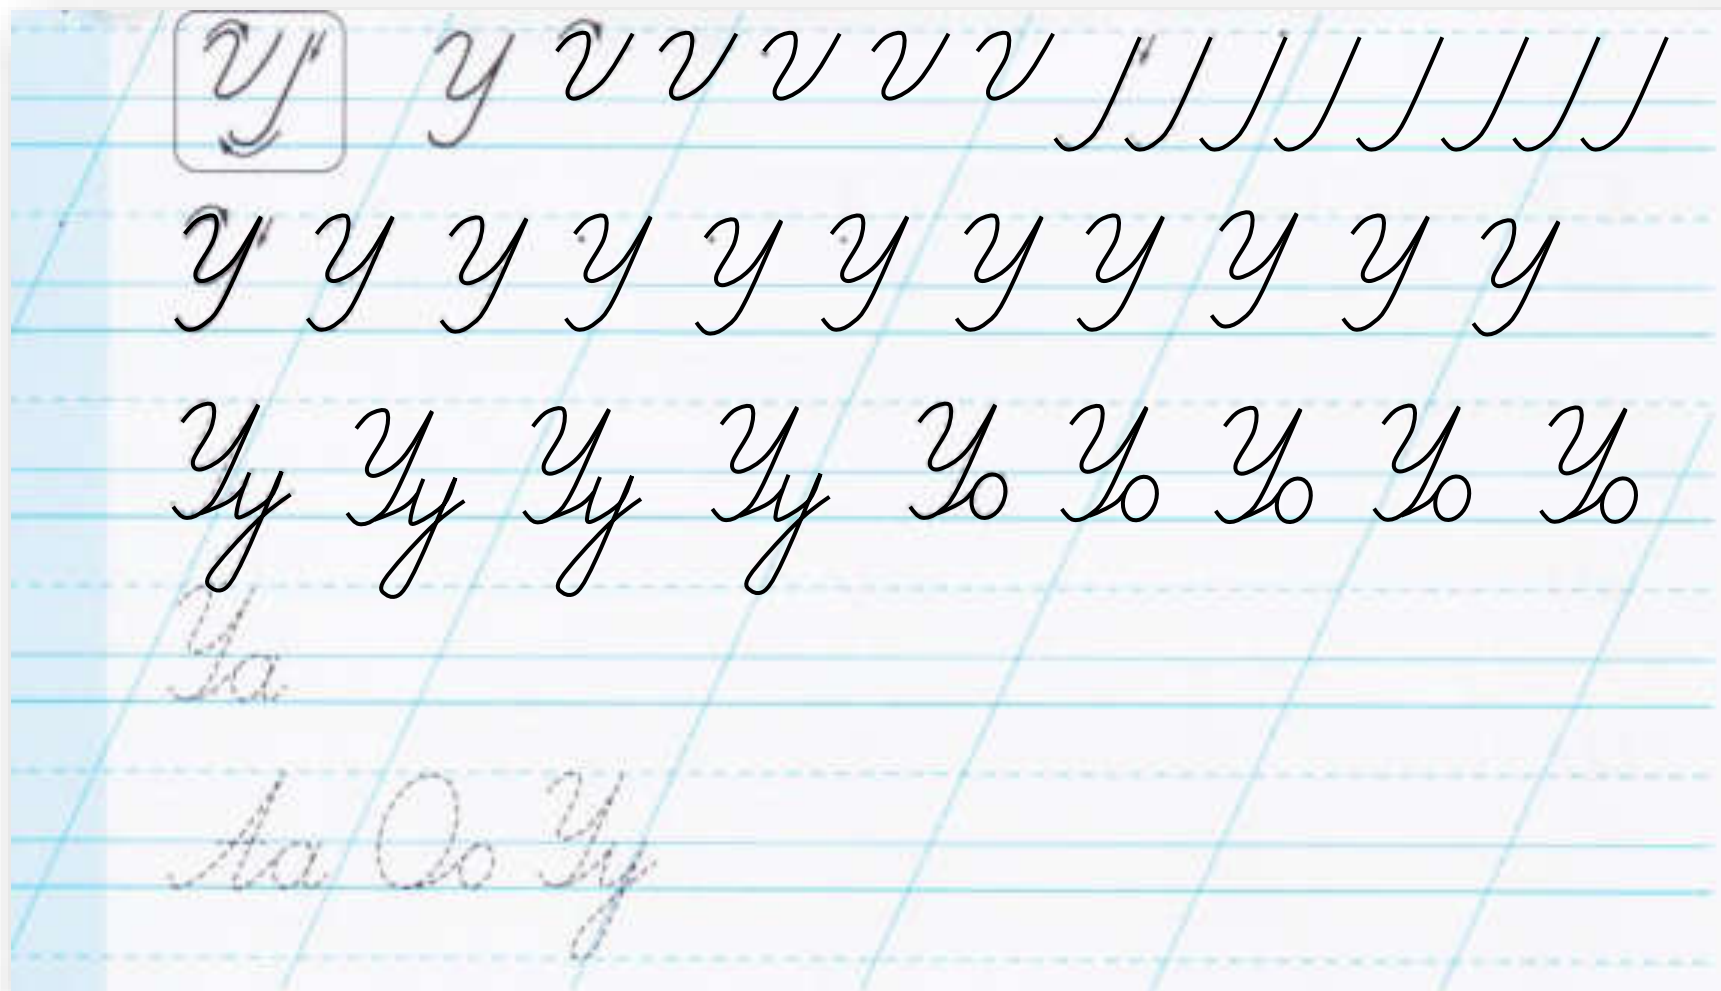 У
У У У У У У У У У У У
Уу Уу Уу Уу Уо Уо Уо Уо Уо
Уа
Аа Оо Уу